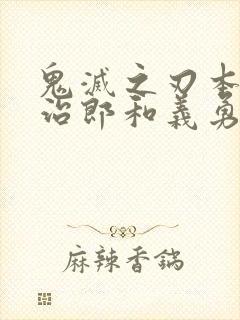 鬼滅之刃本
治郎和義勇
麻辣香鍋